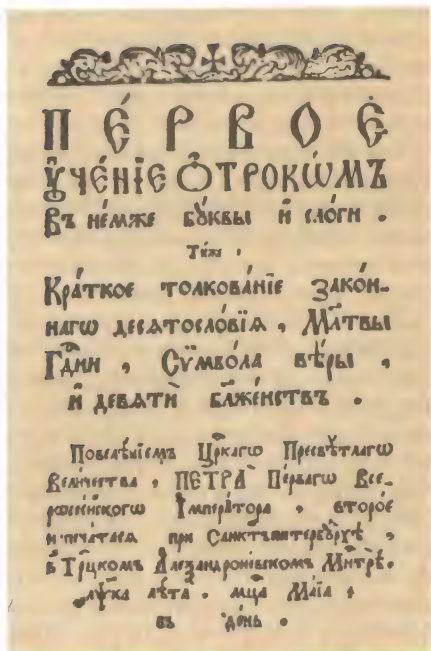 ПЕ́РВОЕ
ᲂУ҆ЧЕ́НЇЕ Ѻ҆́ТРОКѠМЪ
Въ не́мже бꙋ́квы и҆ сло́ги .
Та́же ,
Кра́ткое толкова́нїе Зако́н-
нагѡ десѧтосло́вїѧ , Мл҃твы
Гд҇ни , Сѷмво́ла вѣ́ры ,
и҆ девѧтѝ бл҃же́нствъ .
Повелѣ́нїемъ Цр҇кагѡ Пресвѣ́тлагѡ
Вели́чества , ПЕТРА̀ Пе́рвагѡ Все-
рѡссі́йскогѡ І҆мпера́тора , второ́е
напеча́тасѧ при Санктъпитербꙋ́рхѣ ,
в Трⷪ҇цкомъ А҆леѯандроне́вскомъ Мн҇трѣ̀ .
лѣ́та . мц҇а Ма́їа ,
въ де́нь .